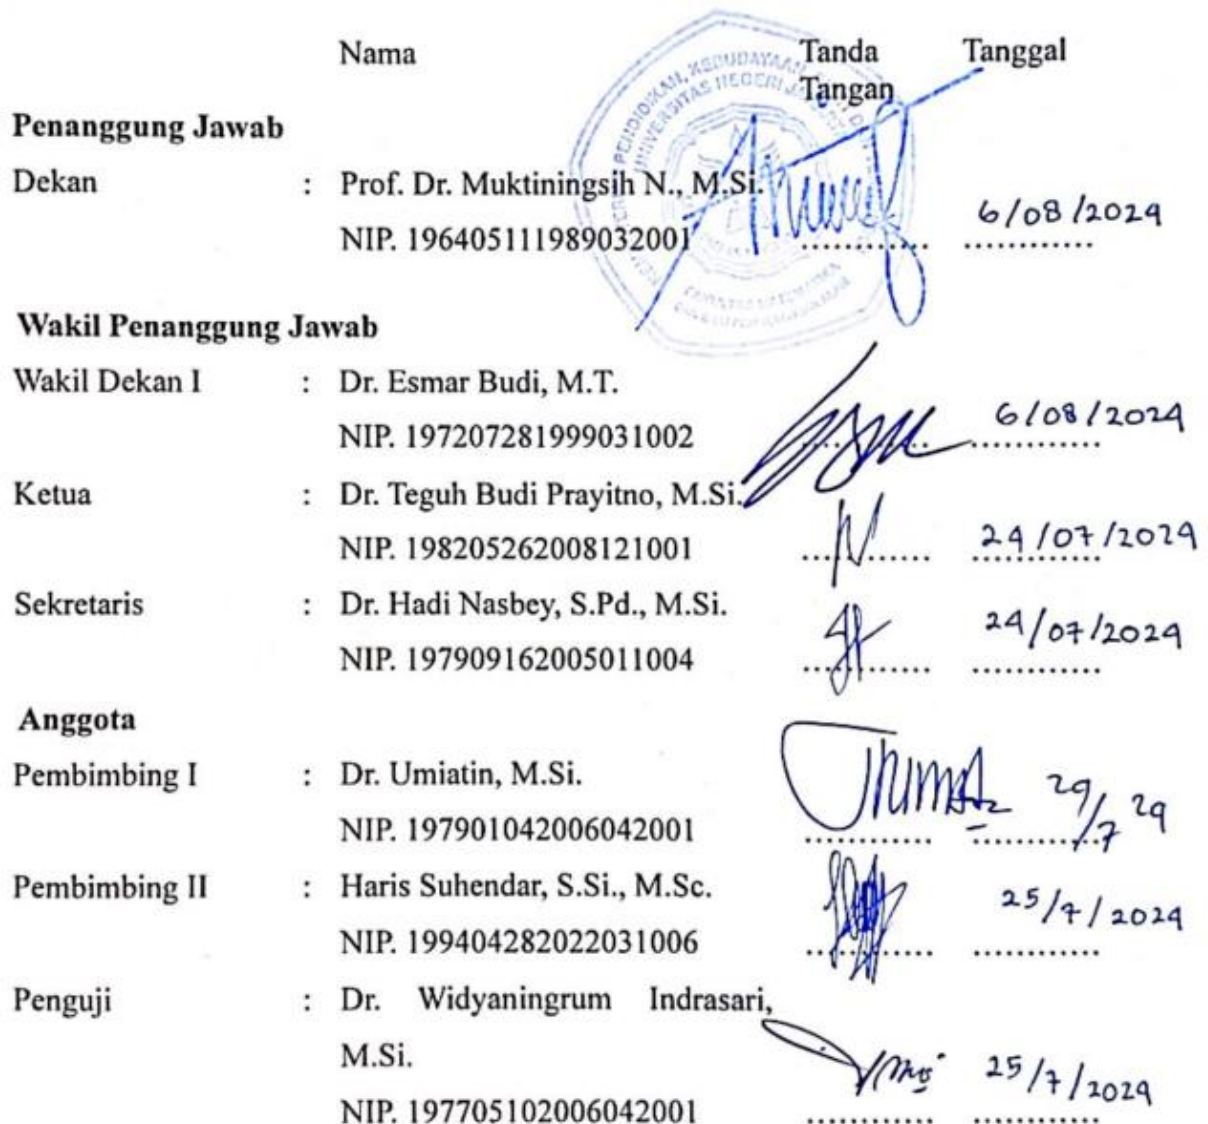 Nama Tanda Tanggal
Tangan
Penanggung Jawab
Dekan : Prof. Dr. Muktiningsih N., M.Si.
NIP. 196405111989032001 6/08/2024
Wakil Penanggung Jawab
Wakil Dekan I : Dr. Esmar Budi, M.T.
NIP. 197207281999031002 6/08/2024
Ketua : Dr. Teguh Budi Prayitno, M.Si.
NIP. 198205262008121001 24/07/2024
Sekretaris : Dr. Hadi Nasbey, S.Pd., M.Si.
NIP. 197909162005011004 24/07/2024
Anggota
Pembimbing I : Dr. Umiatin, M.Si.
NIP. 197901042006042001
Pembimbing II : Haris Suhendar, S.Si., M.Sc.
NIP. 199404282022031006 25/7/2024
Penguji : Dr. Widyaningrum Indrasari,
M.Si.
NIP. 197705102006042001 25/7/2024
PENDIDIKAN, KEBUDAYAAN,
UNIVERSITAS NEGERI